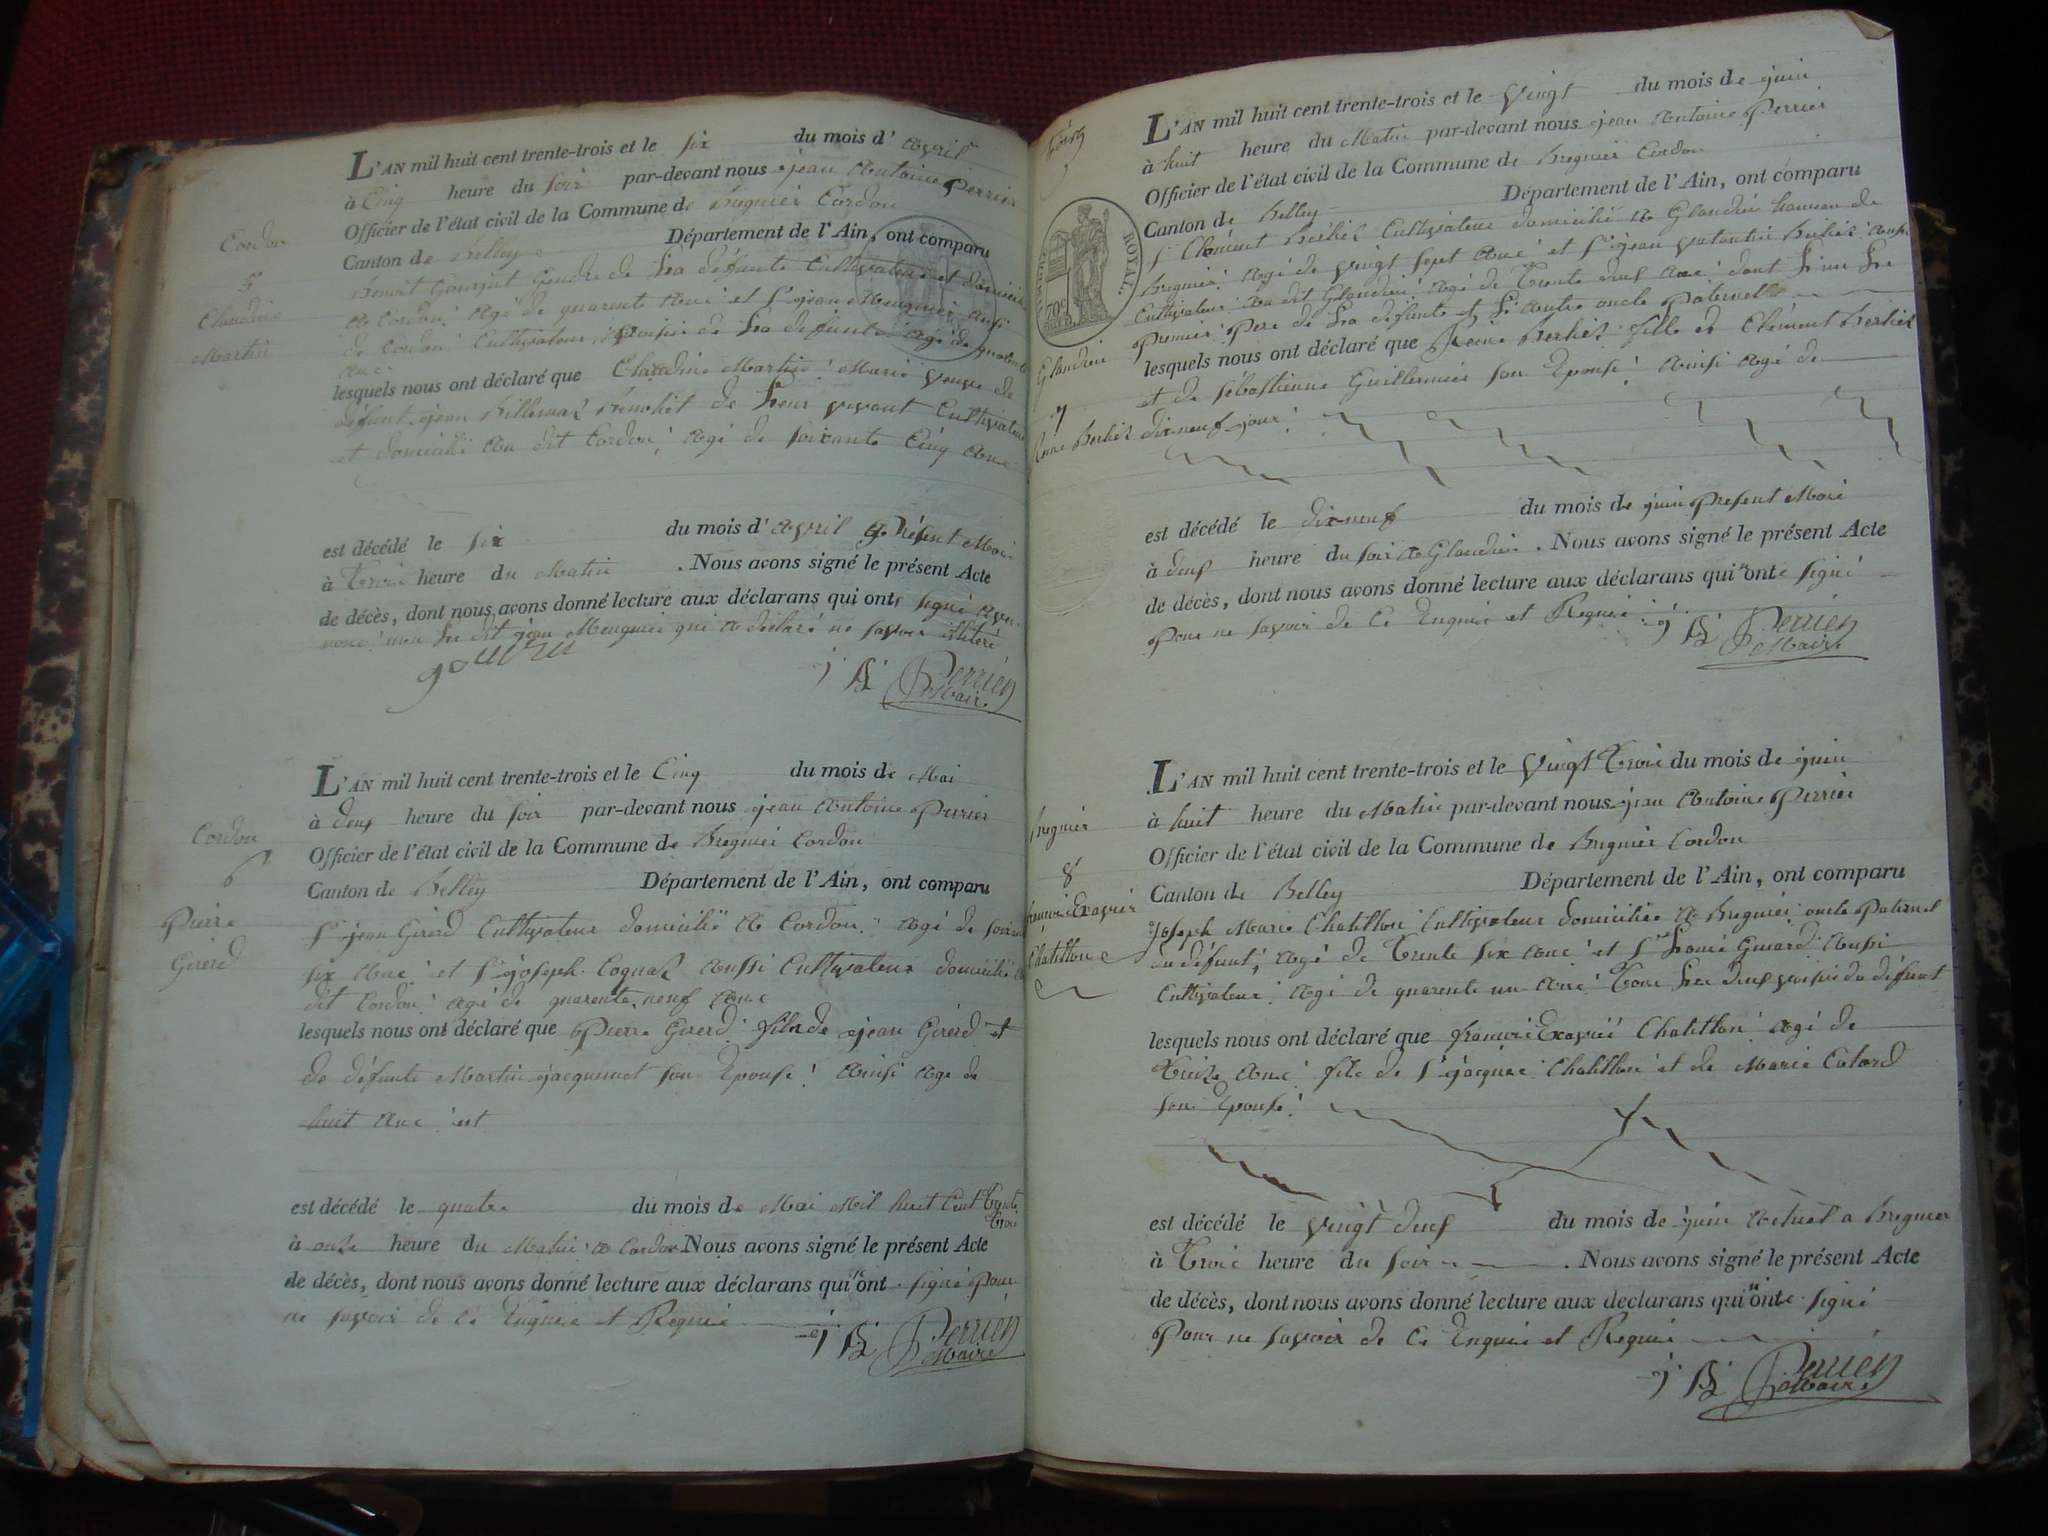 L'AN mil huit cent trente-trois et le six du mois d' avril
à Cinq heure du soir par-devant nous jean Antoine Perrier
Officier de l'état civil de la Commune de Bregnier Cordon
Canton de Belley Département de l'Ain, ont comparu
Benoit gendre de La défunte Cultivateur et domicilié
a Cordon agé de quarente ans et Sr jean Meugnier aussi
de Cordon Cultivateur, voisin de La defunte agé de quarente
ans
lesquels nous ont déclaré que Claudine Martin veuve de
défunt jean de Leur vivant Cultivateur
et domicilié au dit Cordon agé de soixante Cinq ans
est décédé le six du mois d' avril Présent Moi
à Trois heure du Matin . Nous avons signé le présent Acte
de décès, dont nous avons donné lecture aux déclarans qui ont signé avec
nous non Le dit jean Meugnier qui a déclaré ne savoir
j Bte Perrier
Maire
Cordon
5
Claudine
Martin
L'AN mil huit cent trente-trois et le Cinq du mois de Mai
à deux heure du soir par-devant nous jean Antoine Perrier
Officier de l'état civil de la Commune de Bregnier Cordon
Canton de Belley Département de l'Ain, ont comparu
Sr jean Girerd Cultivateur domicilié a Cordon agé de
six ans et Sr joseph Cognat aussi Cultivateur domicilié au
dit Cordon agé de quarente neuf ans
lesquels nous ont déclaré que Pierre Girerd fils de jean Girerd et
de défunte Martin jacquemet son Epouse ainsi age de
huit ans est
est décédé le quatre du mois de Mai Mil huit Cent Trente
Trois
à onze heure du Matin a Cordon Nous avons signé le présent Acte
de décès, dont nous avons donné lecture aux déclarans qui n'ont signé Pour
ne savoir de Ce Enquis et Requis
j Bte Perrier
Maire
Cordon
6
Pierre
Girerd
L'AN mil huit cent trente-trois et le vingt du mois de juin
à huit heure du Matin par-devant nous jean Antoine Perrier
Officier de l'état civil de la Commune de Bregnier Cordon
Canton de Belley Département de l'Ain, ont comparu
Sr Clément Berliet Cultivateur domicilié a Glandieu hameau de
Bregnier agé de vingt sept ans et Sr jean Valantin Berliet aussi
Cultivateur au dit Glandieu agé de Trente deux ans dont L'un Le
Premier Pere de La défunte et L'autre oncle Paternelle
lesquels nous ont déclaré que Reine Berliet fille de Clément Berliet
et de Sébastienne Guillermier son Epouse ainsi agé de
dix neuf jour
est décédé le dix-neuf du mois de juin Present Mois
à deux heure du soir a Glandieu . Nous avons signé le présent Acte
de décès, dont nous avons donné lecture aux déclarans qui n'ont signé
Pour ne savoir de Ce Enquis et Requis
j Bte Perrier
Maire
ROYAL
Glandieu
7
Reine Berliet
L'AN mil huit cent trente-trois et le Vingt Trois du mois de juin
à huit heure du Matin par-devant nous jean Antoine Perrier
Officier de l'état civil de la Commune de Bregnier Cordon
Canton de Belley Département de l'Ain, ont comparu
Joseph Marie Chatillon Cultivateur domicilié a Bregnier oncle Paternel
du défunt, agé de Trente six ans et Sr aussi
Cultivateur agé de quarente un ans Tous Les deux voisin du défunt
lesquels nous ont déclaré que francois Exavier Chatillon agé de
Treize ans fils de Sr jacques Chatillon et de Marie
son Epouse
est décédé le vingt deux du mois de juin actuel a Bregnier
à Trois heure du soir . Nous avons signé le présent Acte
de décès, dont nous avons donné lecture aux declarans qui n'ont signé
Pour ne savoir de Ce Enquis et Requis
j Bte Perrier
Maire
Bregnier
8
francois Exavier
Chatillon